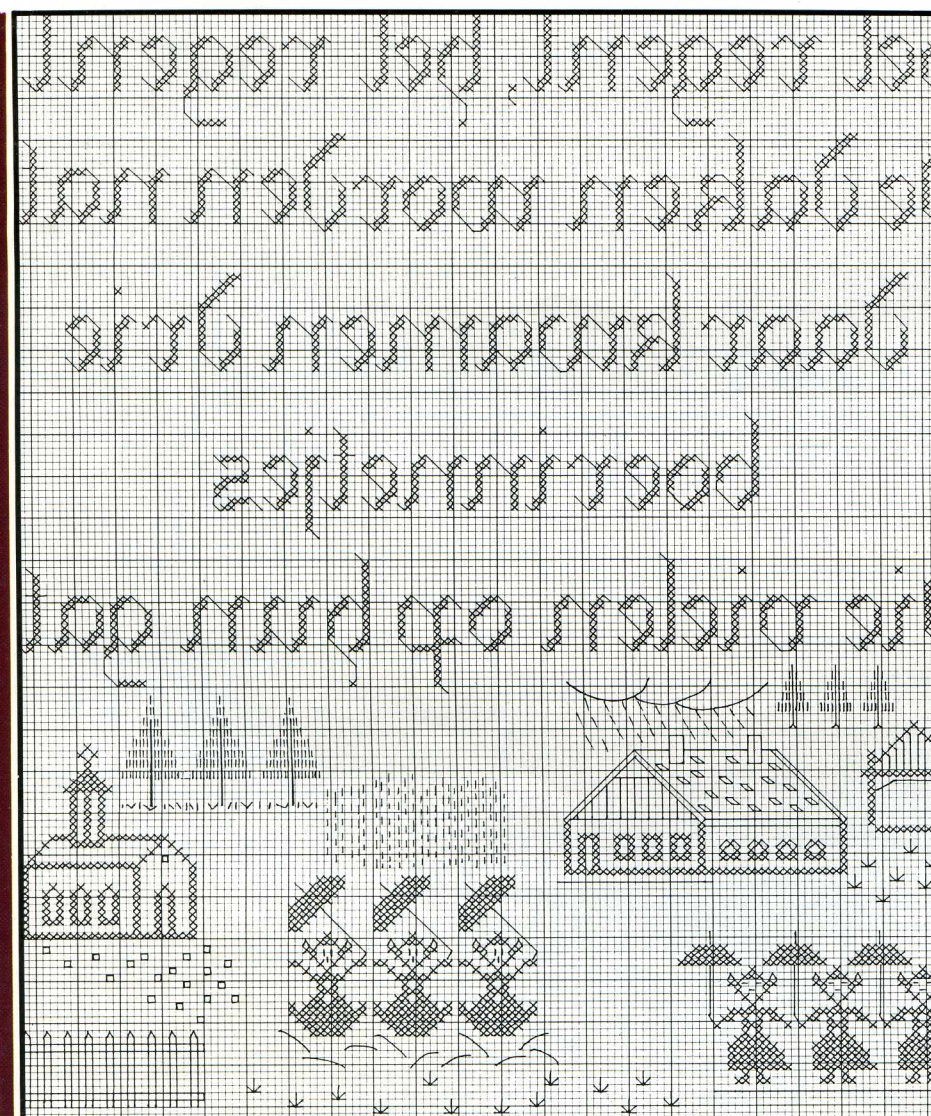 et regent het regent
de daken worden nat
daar kwamen drie
boerinnetjes
die vielen op hun gat